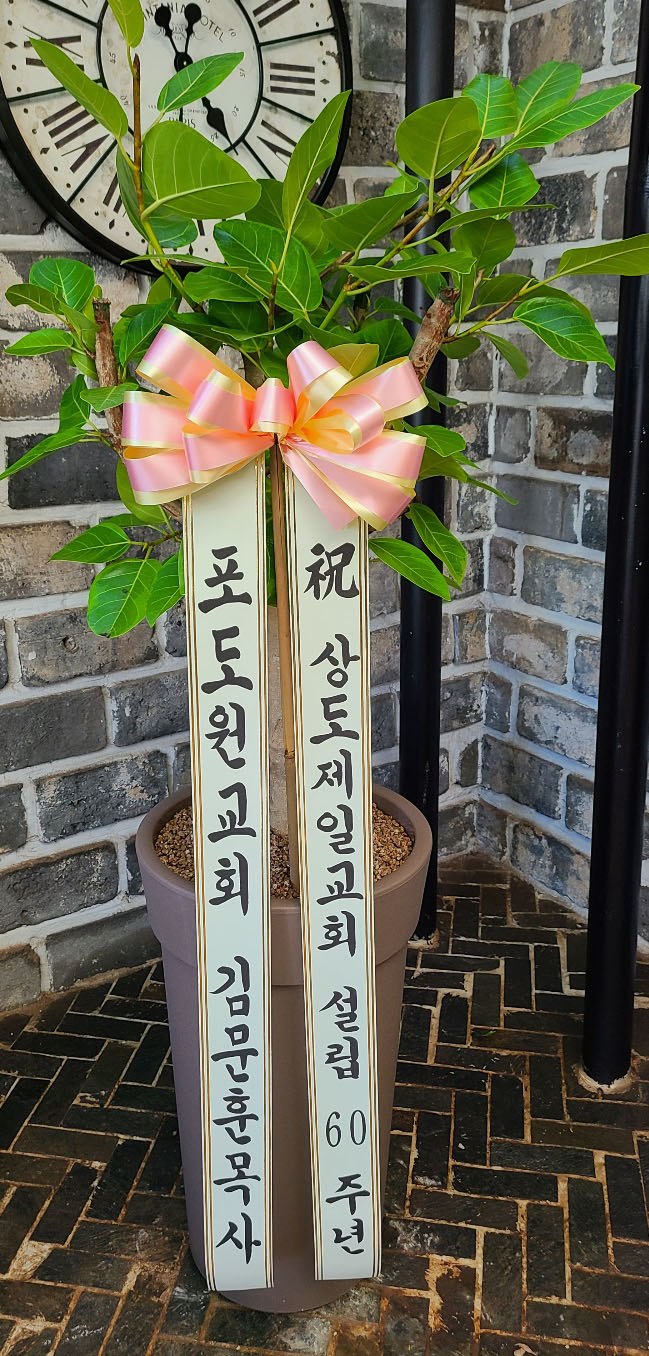 HOTEL
포도원교회 김문훈목사
祝 상도제일교회 설립 60 주년